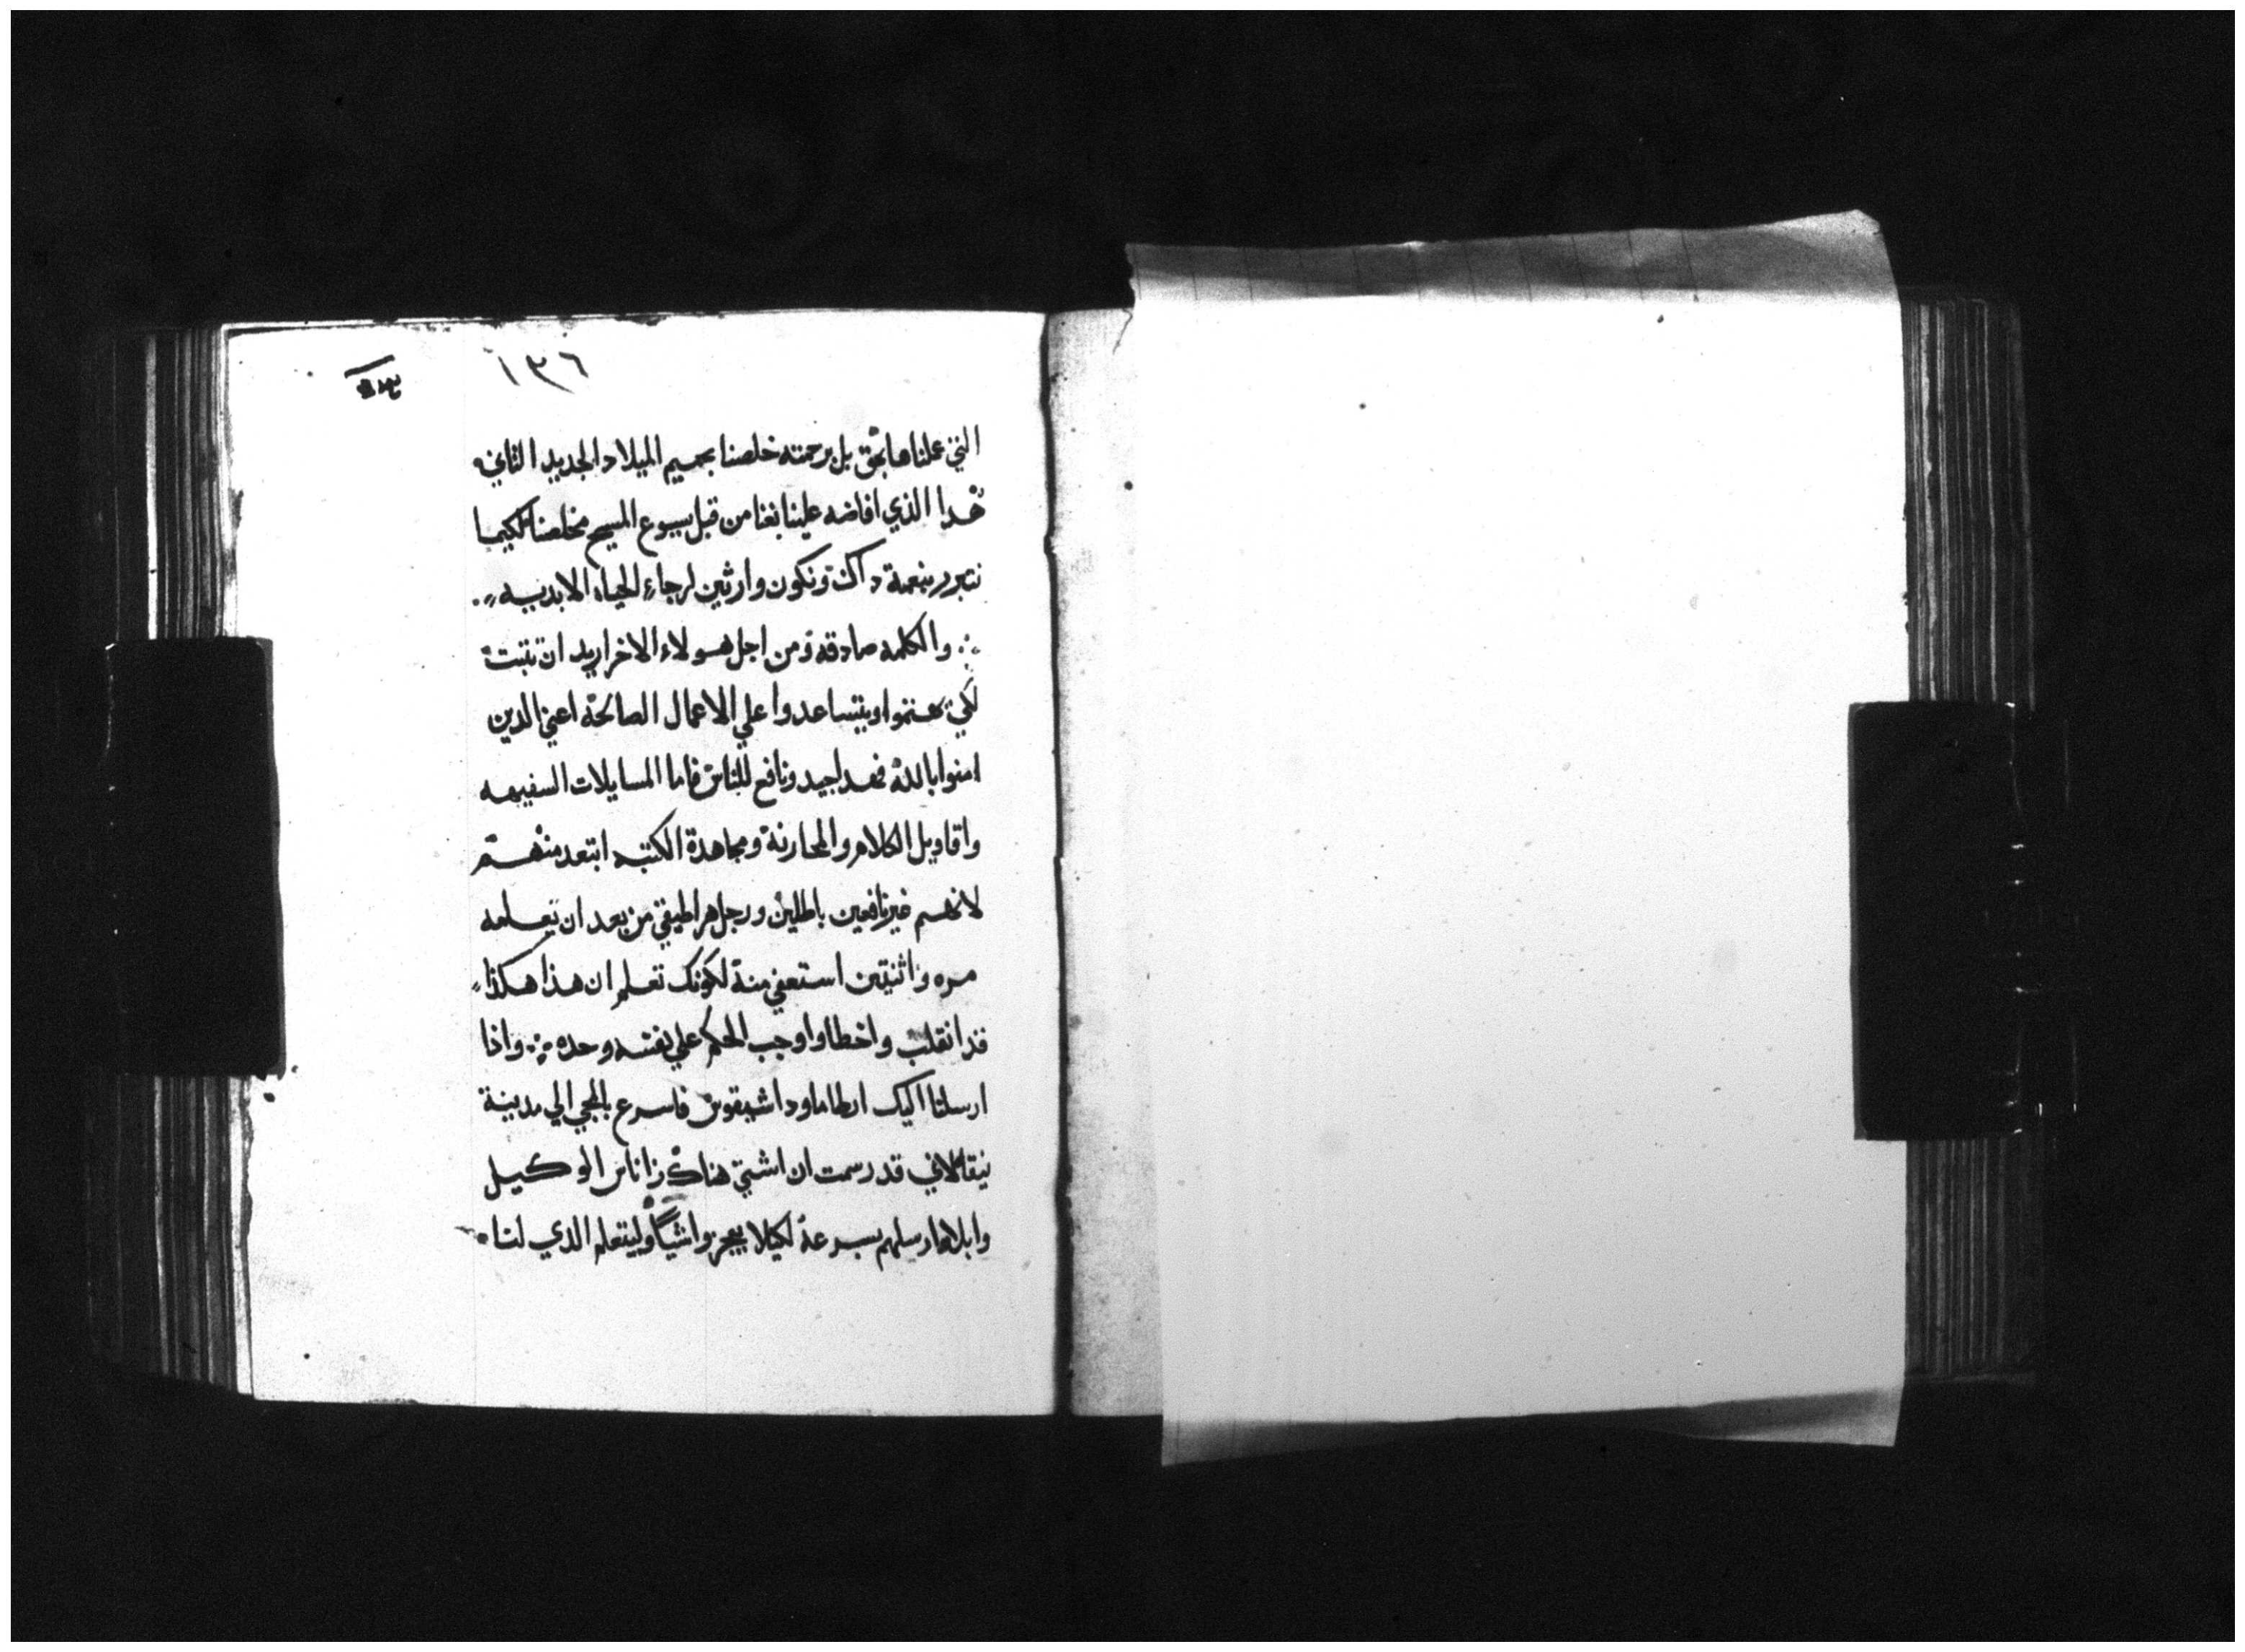 ١٣٦
التي عملناها بحق بل برحمته خلصنا بحميم الميلاد الجديد الثاني
هدا الذي افاضه علينا بغنا من قبل يسوع المسيح مخلصنا لكيما
نتبرر بنعمة داك ونكون وارثين لرجاء الحياه الابديه
والكلمه صادقه ومن اجل هولاء الاخر اريد ان تثبت
لكي يهتموا ويتساعدوا علي الاعمال الصالحة اعني الدين
امنوا بالله فهدا جيد ونافع للناس فاما المسايلات السفيهه
واقاويل الكلام والمحارنة ومجاهدة الكتبه ابتعد منهم
لانهم غير نافعين باطلين ورجل هراطيقي من بعد ان تعلمه
مره واثنتين استعفي منة لكونك تعلم ان هذا هكذا
قد انقلب واخطا واوجب الحكم علي نفسه وحده واذا
ارسلنا اليك ارطاما ود اشيقوس فاسرع بالمجي الي مدينة
نيقا لاني قد رسمت ان اشتي هناك زاناس الوكيل
وابلاوا ارسلهم بسرعة لكيلا يعجزوا شيا وليتعلم الدي لنا